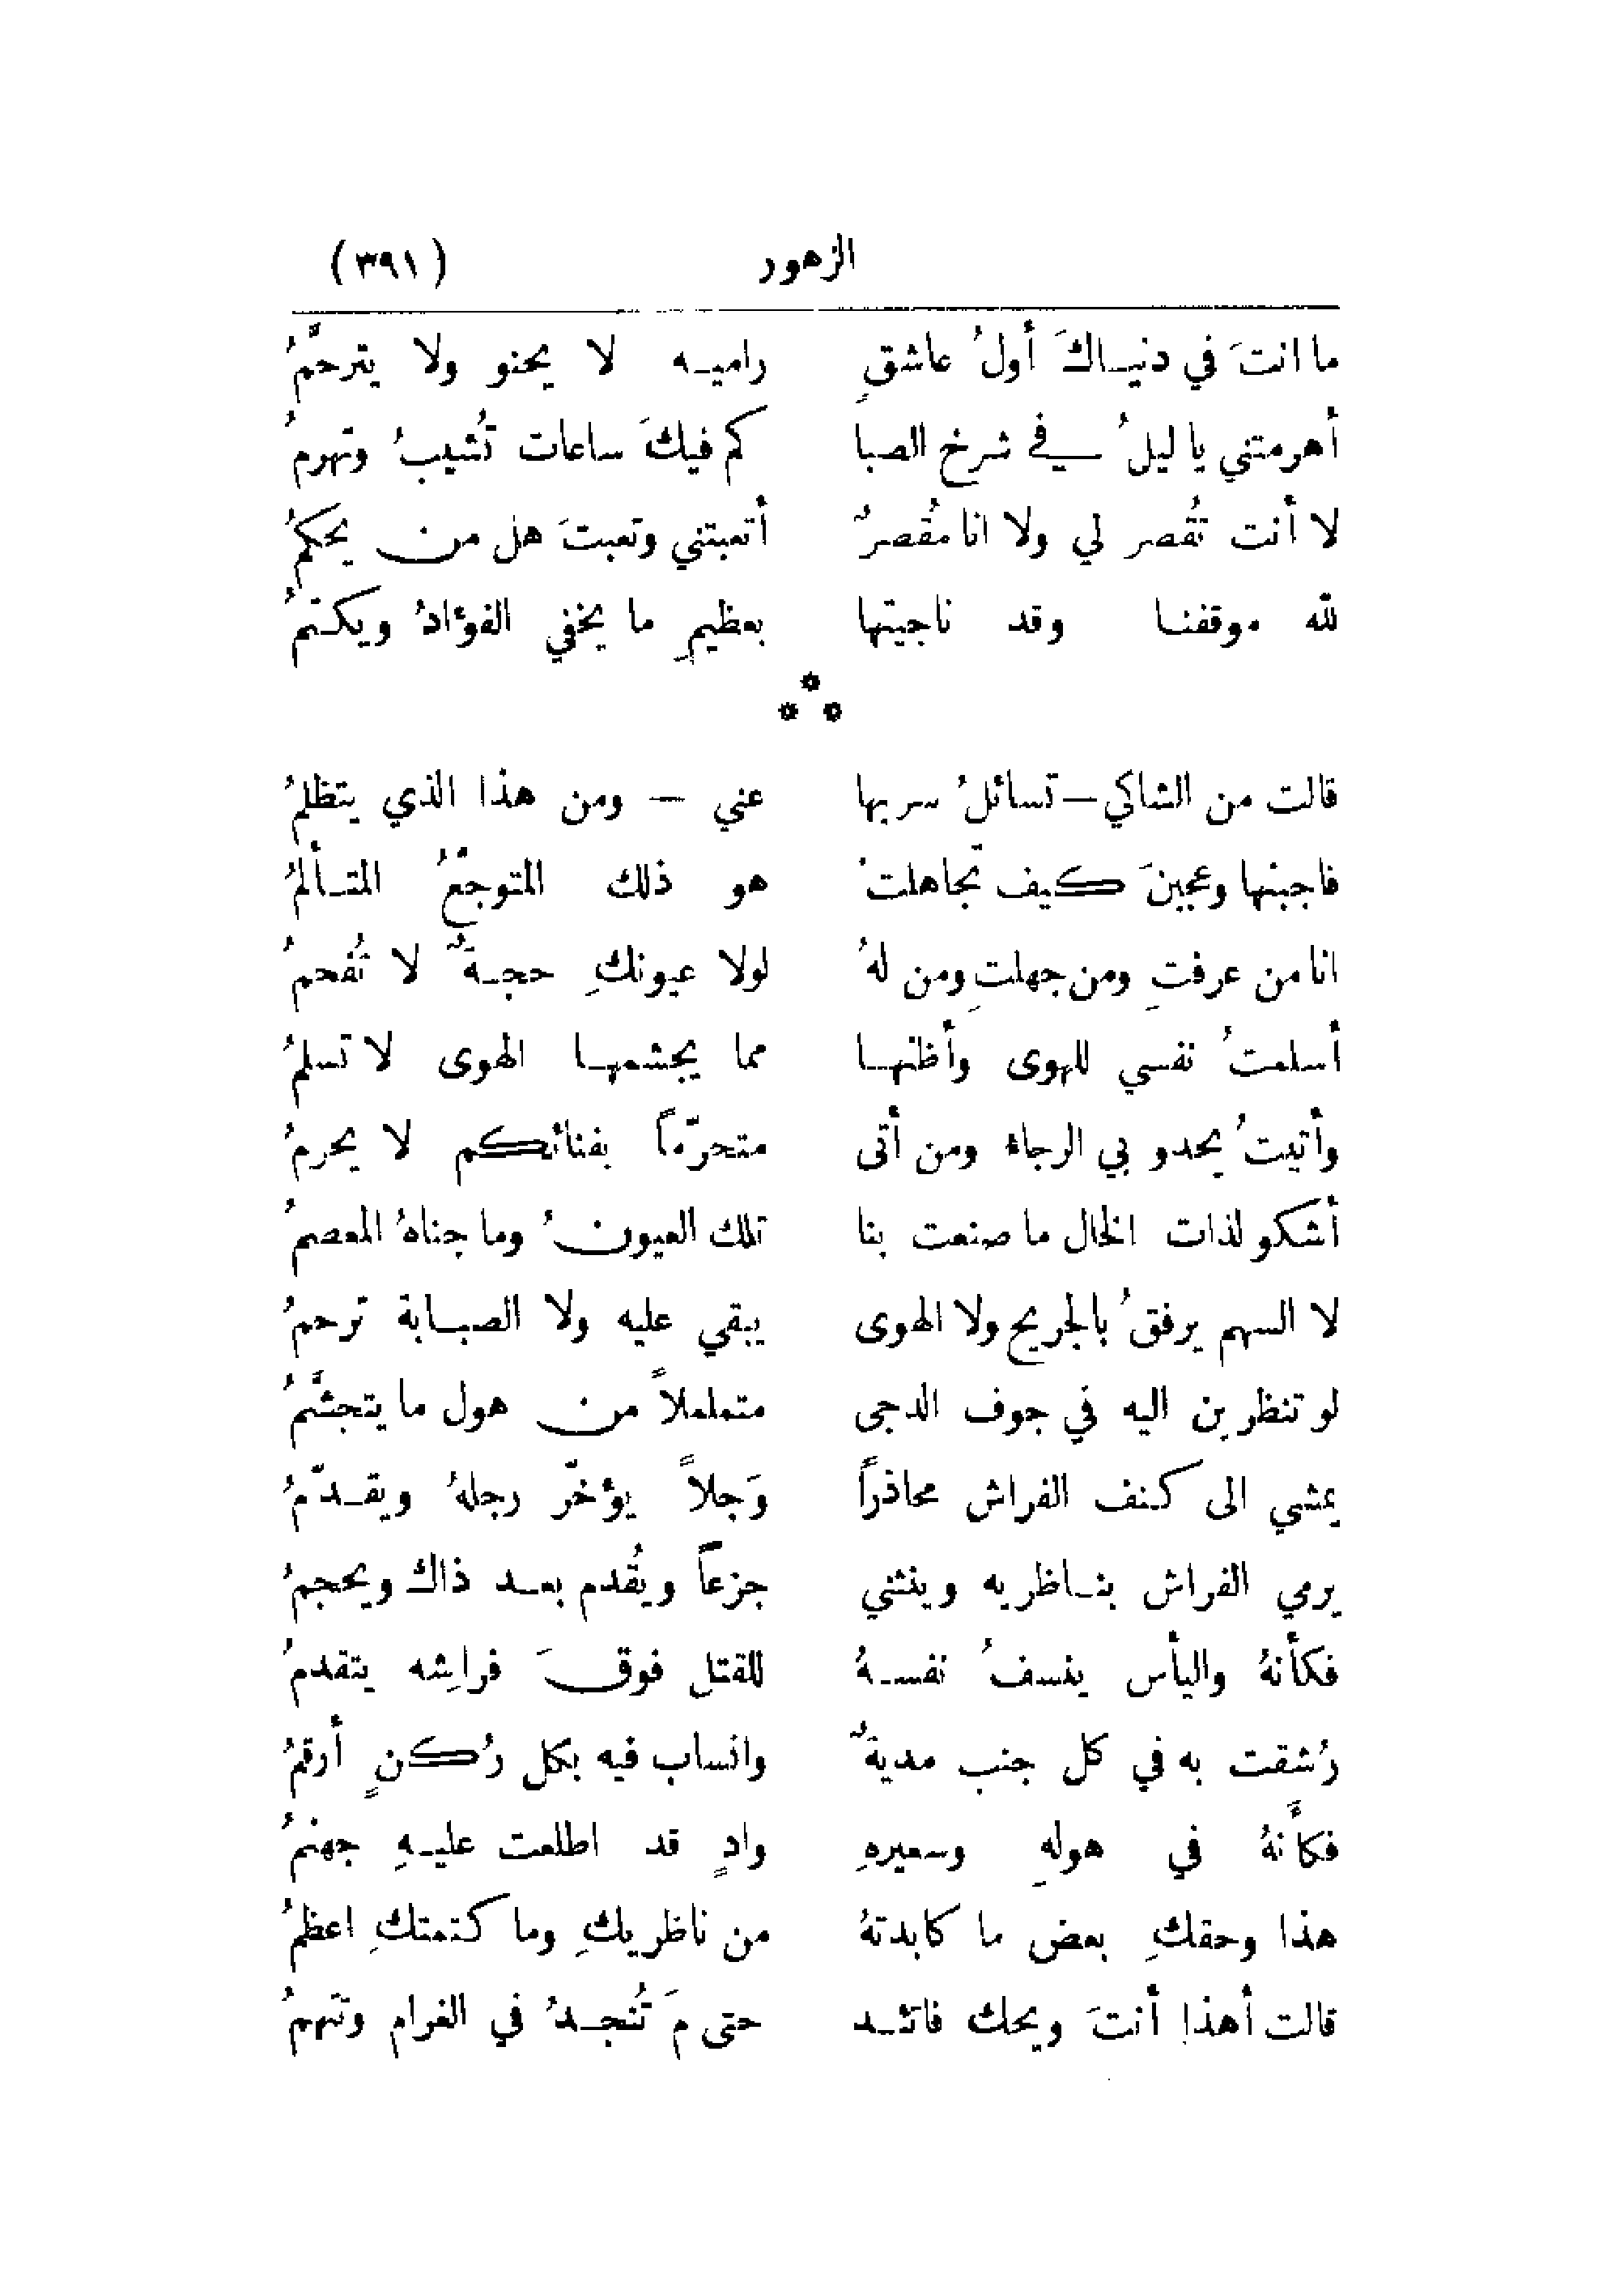 الزهور (٣٩١)
ما انتَ في دنياكَ أولُ عاشقٍ راميه لا يحنو ولا يترحَّمُ
أهرمتني يا ليلُ في شرخ الصبا كم فيكَ ساعات تُشيبُ وتهرمُ
لا أنت تُقصر لي ولا انا مُقصرٌ أتعبتني وتعبتَ هل من يحكمُ
لله موقفنا وقد ناجيتها بعظيمِ ما يخفي الفؤادُ ويكتمُ
***
قالت من الشاكي – تسائلُ سربها عني – ومن هذا الذي يتظلمُ
فاجبنها وعجبنَ كيف تجاهلتْ هو ذلك المتوجّعُ المتألمُ
انا من عرفتِ ومن جهلتِ ومن لهُ لولا عيونكِ حجةٌ لا تُفحمُ
أسلمتُ نفسي للهوى وأظنها مما يجشمها الهوى لا تسلمُ
وأتيتُ يحدو بي الرجاء ومن أتى متحرّماً بفنائكم لا يحرمُ
أشكو لذات الخال ما صنعت بنا تلك العيونُ وما جناهُ المعصمُ
لا السهم يرفقُ بالجريح ولا الهوى يبقي عليه ولا الصبابة ترحمُ
لو تنظرين اليه في جوف الدجى متململاً من هول ما يتجشَّمُ
يمشي الى كنف الفراش محاذراً وَجلاً يؤخّر رجلهُ ويقدّمُ
يرمي الفراش بناظريه وينثني جزعاً ويُقدم بعد ذاك ويحجمُ
فكأنهُ واليأس ينسفُ نفسهُ للقتل فوقَ فراشِه يتقدمُ
رُشقت به في كل جنب مديةٌ وانساب فيه بكل رُكنٍ أرقمُ
فكأنهُ في هولهِ وسعيرهِ وادٍ قد اطلعت عليهِ جهنمُ
هذا وحقكِ بعض ما كابدتهُ من ناظريكِ وما كتمتكِ اعظمُ
قالت أهذا أنتَ ويحك فاتئد حتى مَ تُنجدُ في الغرام وتتهمُ